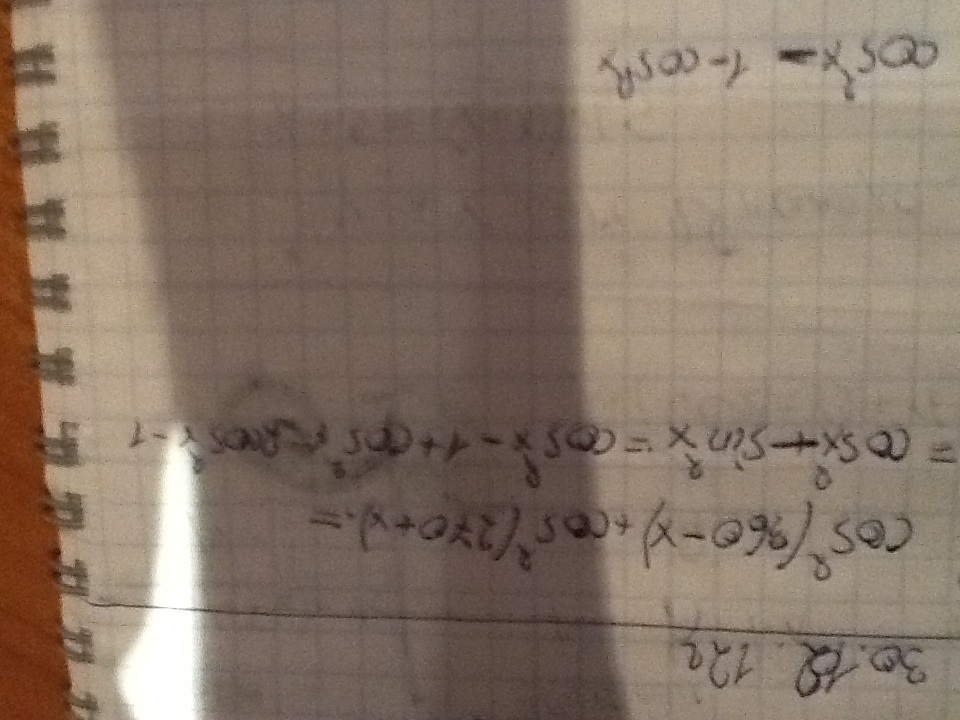 30.12. 12г
cos²(360-x)+cos²(270+x).=
=cos²x+sin²x=cos²x-1+cos²x=2cos²x-1
cos²x-1-cos²x